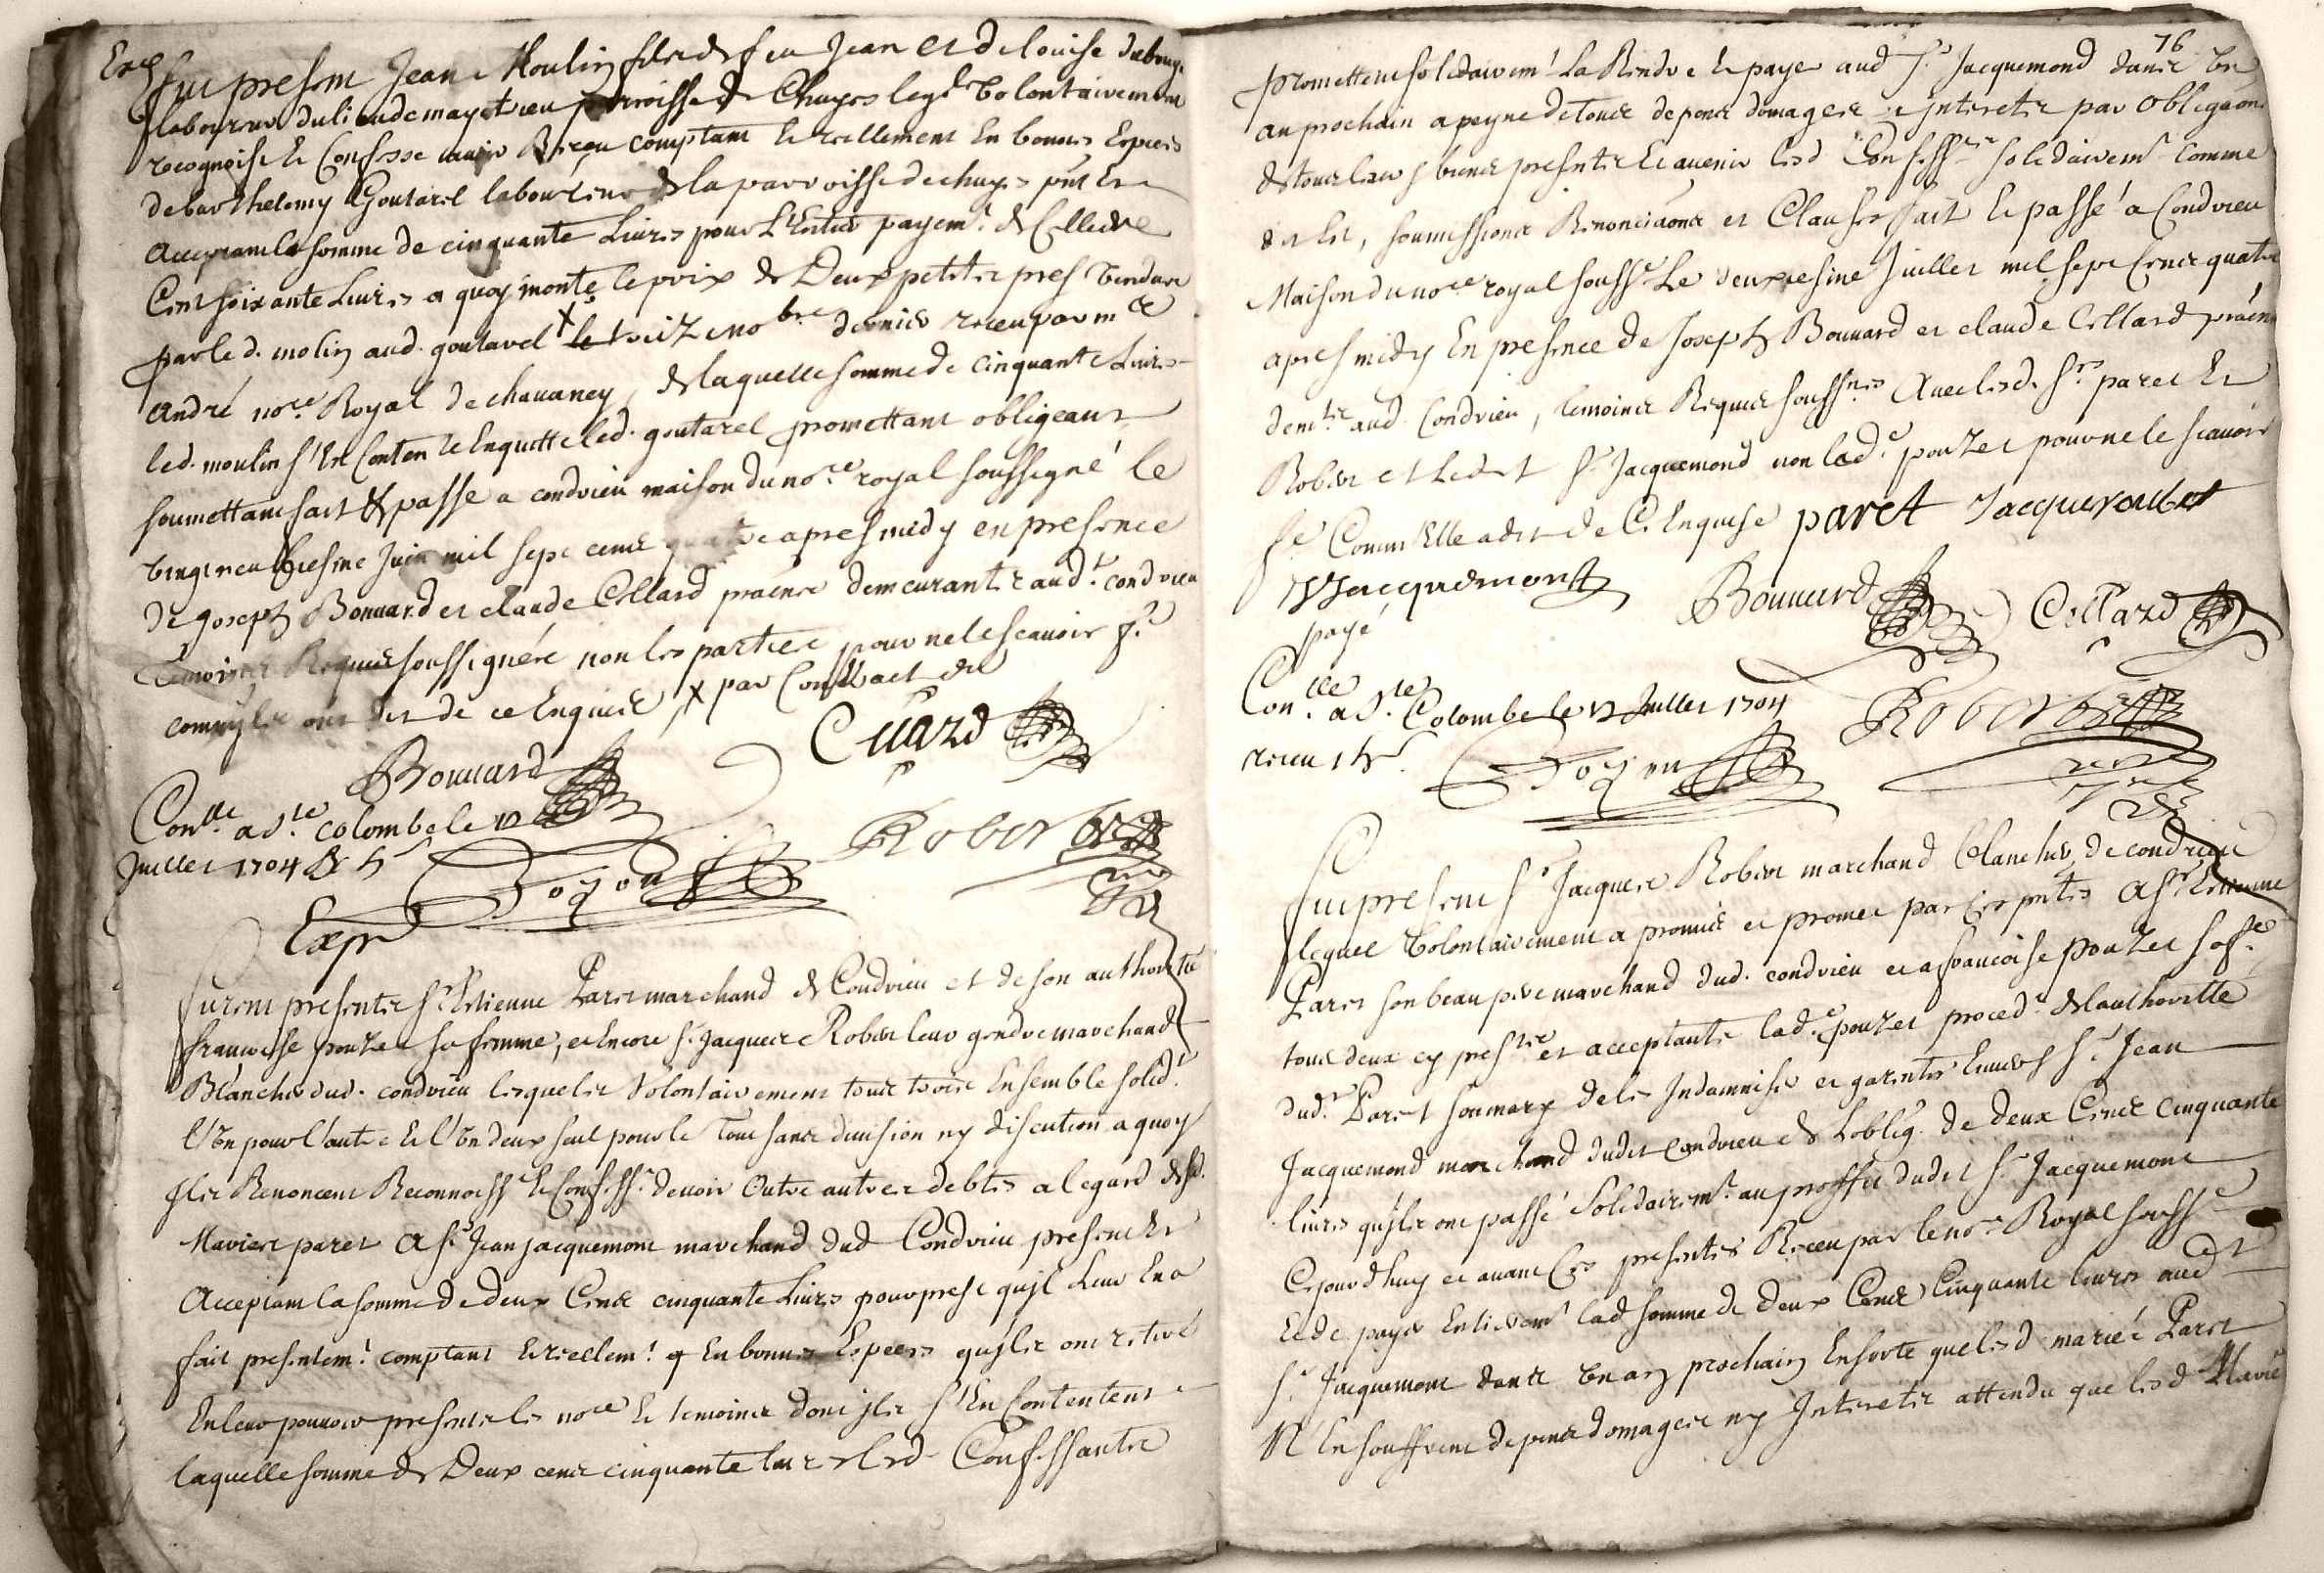 Exp
Fut present Jean Moulin fils de feu Jean et de Louise
laboureur du lieu de parroisse de Chuyes leql volontairement
recognoist et Confesse avoir Receu comptant et reellement En bonnes Especes
de barthelemy Goutarel laboureur de la parroisse de chuyes pnt Et
acceptant la somme de cinquante Livres pour L'Entier payemt. de Celle de
Cent soixante Livres a quoy monte le prix de Deux petits pres vendus
par led. molin aud. goutarel X le treize nobre dernier receu par me
André nore Royal de chavaney, de laquelle somme de cinquante Livres
led. moulin s'En Contente Enquitte led. goutarel promettant obligeant
soumettant fait & passé a condrieu maison du nore royal soussigné le
vingt neufiesme Juin mil sept cens quatre apres midy en presence
de Joseph Bonnard et claude Collard demeurants aud. condrieu
Temoins Requis soussignés non les parties pour ne le scavoir fe.
comme ils ont dit de ce Enquis X par Contract du
Bonnard
Collard
Conlle a Ste colombe le 12
Juillet 1704 R 5 s
Robert
Expé
Furent presents sr Estienne Paret marchand de Condrieu et de son authorité
francoise pouzet sa femme, et Encore sr. Jacques Robert leur gendre marchand
Blancher dud. condrieu lesquels Volontairement tous trois Ensemble solidt.
l'Un pour l'autre et l'Un deux seul pour le Tout sans division ny discution a quoy
Ils Renoncent Reconnoiss. et Confess. devoir Outre autres debtes a legard desd.
Maries paret A sr. Jean jacquemont marchand dud Condrieu present Et
Acceptant la somme de deux Cens cinquante Livres pour prest qu'il Leur En a
fait presentemt. comptant et reellemt. & En bonnes Especes qu'ils ont retiré
En leur pouvoir presents les nore et temoins dont ils s'En Contentent
laquelle somme de Deux cens cinquante livres lesd. Confessants
76
promettent solidairemt. La Rendre et payer aud sr. Jacquemond dans Un
an prochain a peyne de tous depens domages et Interets par obligaon
de tous leurs biens presents et avenir lesd Confess. solidairemt. comme
dit Est, soumissions Renonciaons et Clauses fait et passé a Condrieu
Maison du nore royal soussé. Le deuxiesme Juillet mil sept Cens quatre
apres midy En presence de Joseph Bonnard et claude Collard
demts. aud. Condrieu, temoins Requis soussnes Avec lesd. srs. paret Et
Robert et Ledit sr. Jacquemond non lad. pouzet pour ne le scavoir
fe. Comm'Elle a dit de Ce Enquise paret Jacques robert
Jacquemont
Bonnard
Collard
payé
Conlle a Ste. Colombe le 12 Juillet 1704
receu 15 s.
Robert
Fut present sr. Jacques Robert marchand blancher de condrieu
lequel Volontairement a promis et promet par Ces pntes A sr. Estienne
Paret son beau pere marchand dud. condrieu et a francoise pouzet sa fe.
tous deux cy presents et acceptants lad. pouzet proced. de lauthorité
dud. Paret son mary de les Indamniser et garentir Envers sr. Jean
Jacquemond marchand dudit condrieu de Loblig. de deux Cens cinquante
livres qu'ils ont passé Solidairemt. au proffit dudit sr. Jacquemont
Cejourdhuy et avant Ces presentes Receu par le nore Royal soussé
Et de payer Entieremt. lad somme de deux Cens Cinquante livres aud
sr. Jacquemont dans Un an prochain Ensorte que lesd mariés Paret
N'En souffrent depens domages ny Interets attendu que lesd Mariés